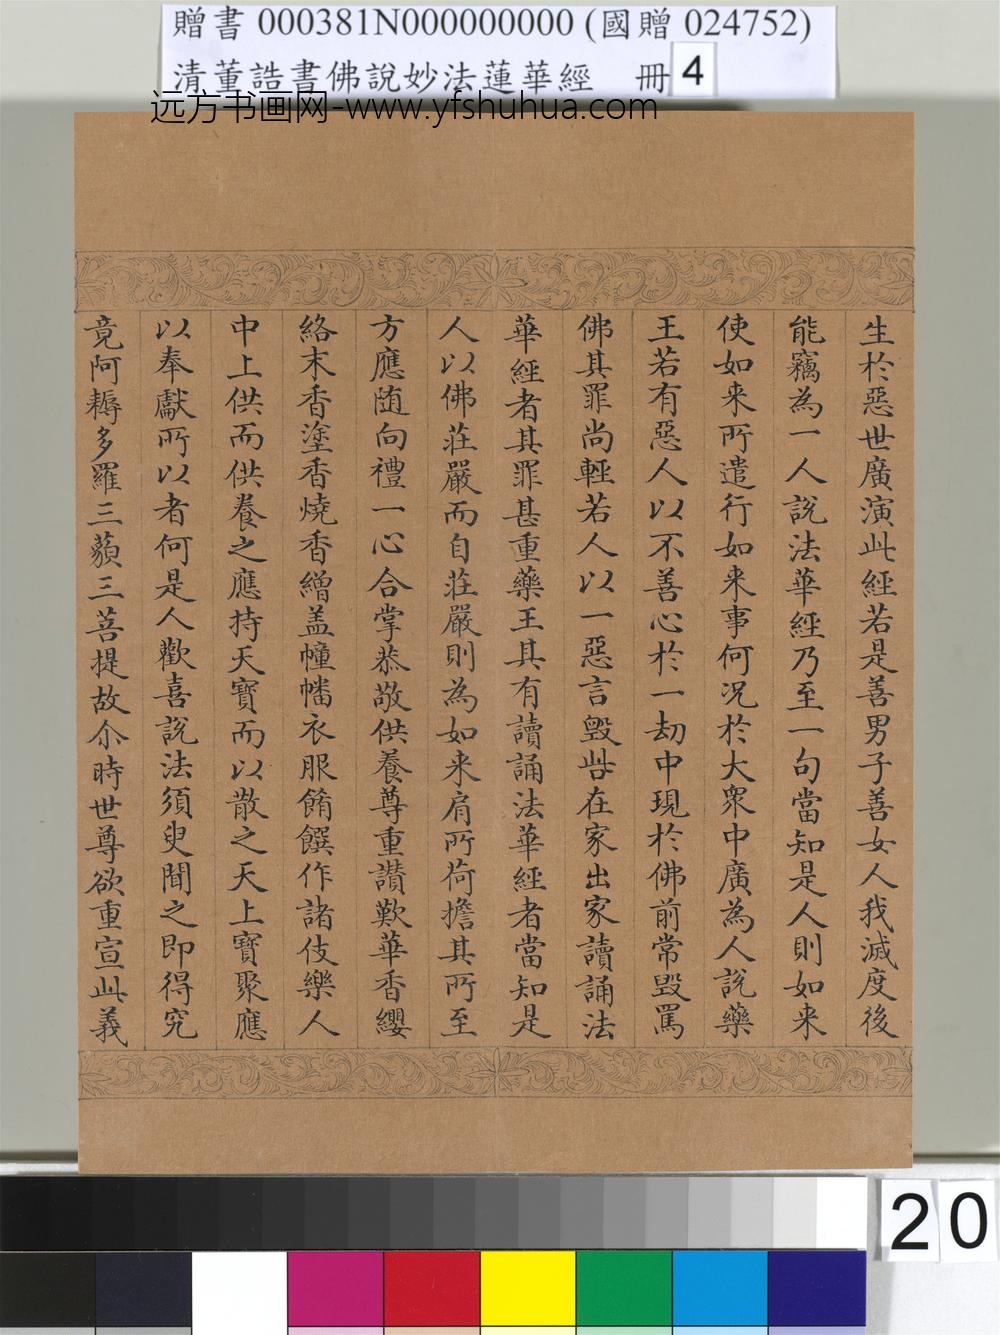 贈書 000381N000000000 (國贈 024752)
清董誥書佛說妙法蓮華經 冊 4
远方书画网-www.yfshuhua.com
生於惡世廣演此經若是善男子善女人我滅度後
能竊為一人說法華經乃至一句當知是人則如来
使如来所遣行如来事何况於大衆中廣為人說藥
王若有惡人以不善心於一劫中現於佛前常毀罵
佛其罪尚輕若人以一惡言毀呰在家出家讀誦法
華經者其罪甚重藥王其有讀誦法華經者當知是
人以佛莊嚴而自莊嚴則為如来肩所荷擔其所至
方應随向禮一心合掌恭敬供養尊重讃歎華香纓
絡末香塗香燒香繒盖幢幡衣服餚饌作諸伎樂人
中上供而供養之應持天寶而以散之天上寶聚應
以奉獻所以者何是人歡喜說法須臾聞之即得究
竟阿耨多羅三藐三菩提故尒時世尊欲重宣此義
20